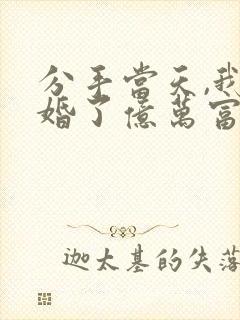 分手當天,我
婚了億萬富
迦太基的失落